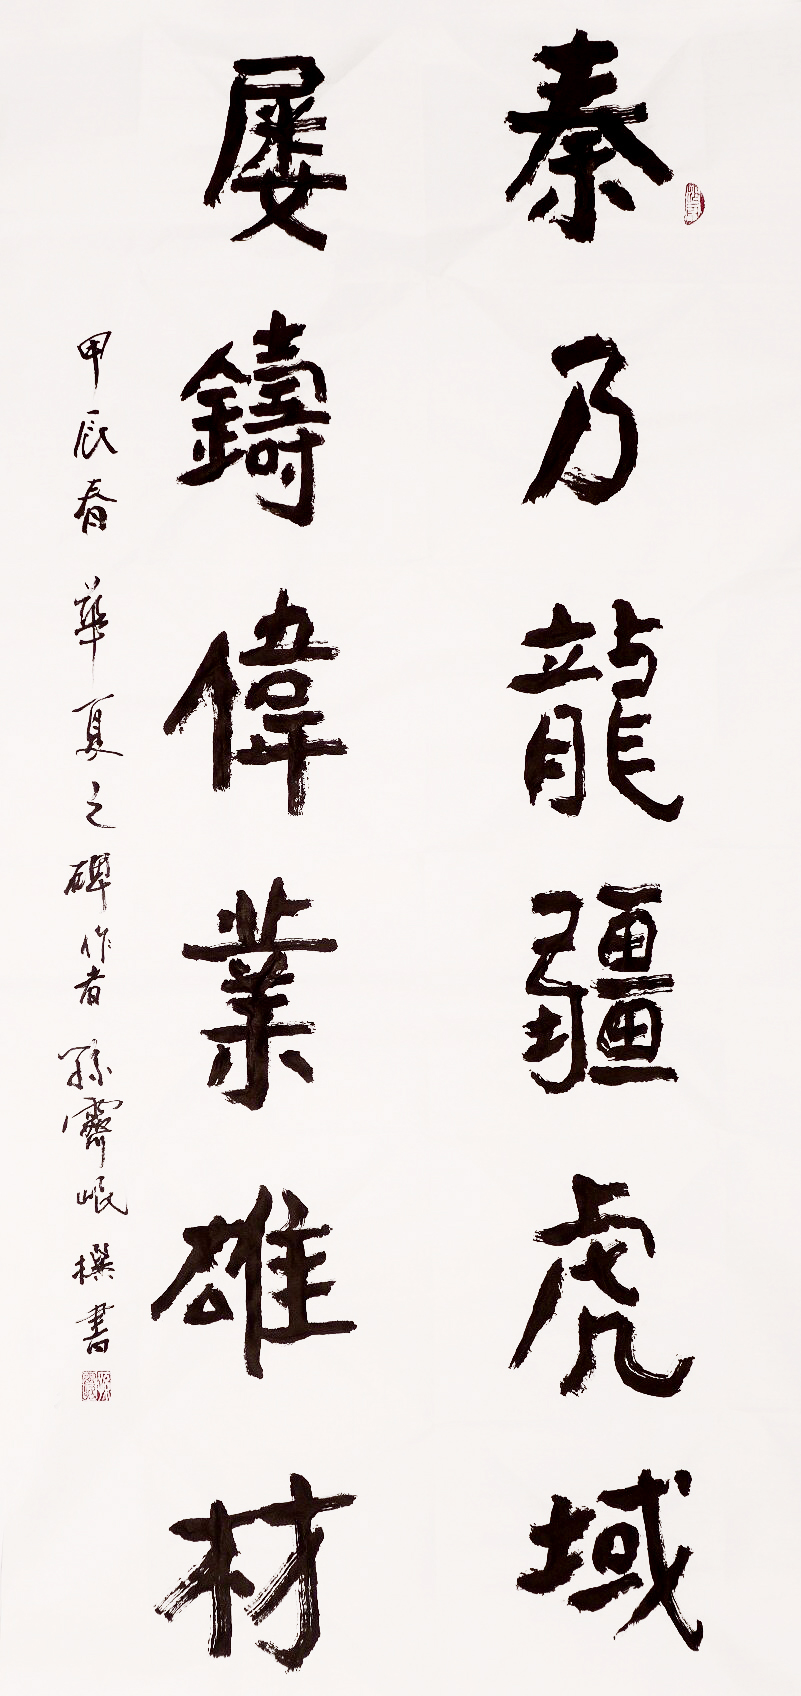 秦乃龍疆虎域
屡鑄偉業雄材
甲辰春 華夏之碑作者 孫霽岷 撰書